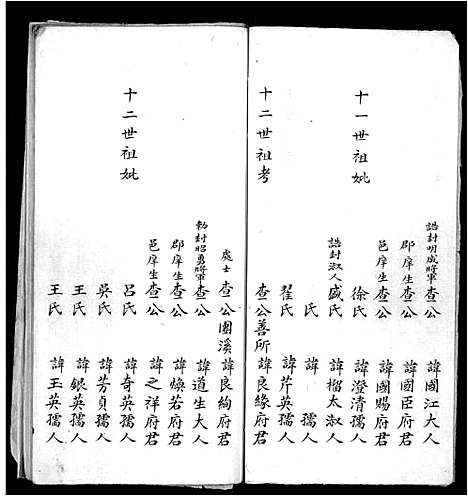 誥封明威將軍查公 諱國江大人
郡庠生查公 諱國臣府君
邑庠生查公 諱國賜府君
十一世祖妣 徐氏 諱澄清孺人
誥封淑人盛氏 諱榴太淑人
氏 諱 孺人
翟氏 諱芹英孺人
十二世祖考 查公善所 諱良緣府君
處士查公團溪 諱良絢府君
勅封昭勇將軍查公 諱道生大人
郡庠生查公 諱煥若府君
邑庠生查公 諱之祥府君
十二世祖妣 呂氏 諱奇英孺人
吳氏 諱芳貞孺人
王氏 諱銀英孺人
王氏 諱玉英孺人